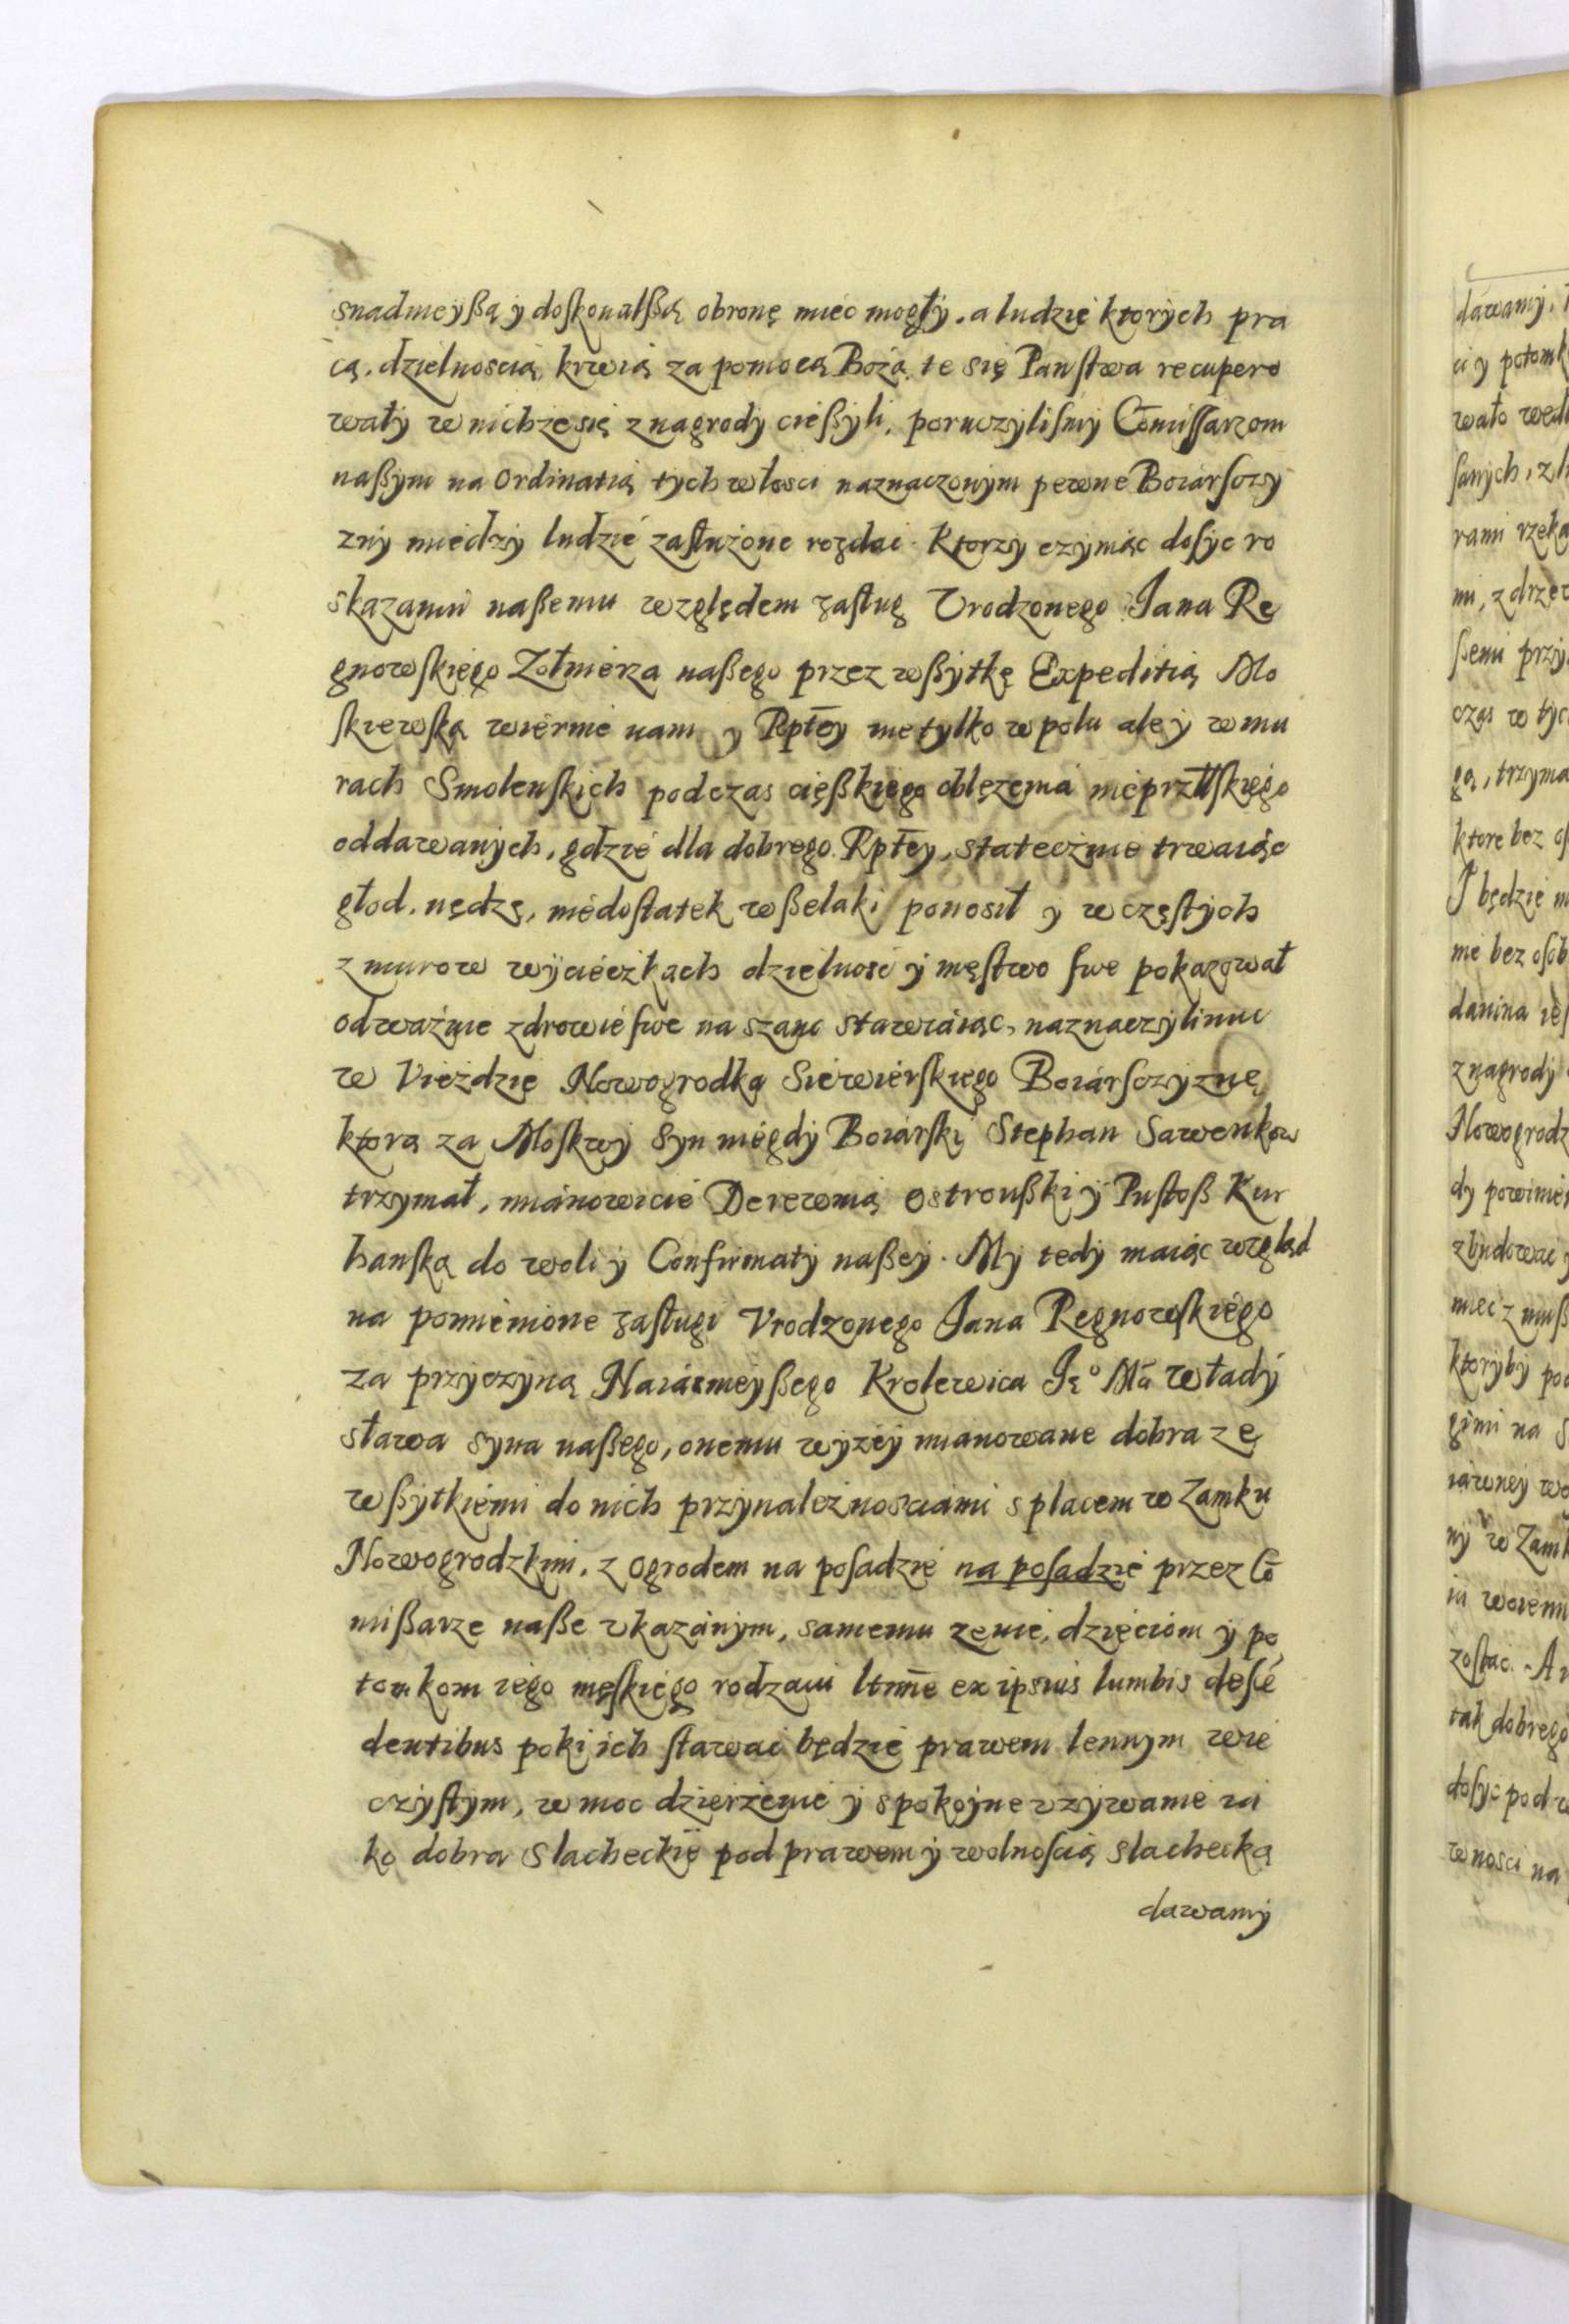 snadnieyßą y doskonalßą obronę mieć mogły. a ludzie ktorych pra
cą. dzielnoscią krwią za pomocą Bożą te się Panstwa recupero
wały w nichże się z nagrody cießyli, poruczylismy Cōmissarzom
naßym na Ordinatią tych włosci naznaczonym pewne Boiarsczy
zny miedzy ludzie zasłużone rozdac. Ktorzy czyniąc dosyc ro
skazaniu naßemu względem zasług Vrodzonego Jana Re
gnowskiego Zołnierza naßego przez wßytkę Expeditią Mo
skiewską wiernie nam y Rptey nie tylko w polu ale y w mu
rach Smolenskich podczas cięßkiego oblęzenia nieprzłłskiego
oddawanych, gdzie dla dobrego Rptey, statecznie trwaiąc
głod. nędzę, niedostatek wßelaki ponosił y w częstych
z murow wycieczkach dzielnosć y męstwo swe pokazował
odważnie zdrowie swe na szanc stawiaiąc, naznaczyli mu
w Vieździe Nowogrodka Siewierskiego Boiarsczyznę
ktorą za Moskwy Syn niegdy Boiarski Stephan Sawenkow
trzymał, mianowicie Derewnią Ostroußki y Pustoß Kur
hanską do woli y Confirmaty naßey. My tedy maiąc wzgląd
na pomienione zasługi Vrodzonego Jana Regnowskiego
za przyczyną Naiasnieyßego Krolewica Jeº Mci Władÿ
sława syna naßego, onemu wyżey mianowane dobra ze
wßytkiemi do nich przynależnosciami s placem w Zamku
Nowogrodzkim. z Ogrodem na posadzie na posadzie przez Cō
mißarze naße vkazanym, samemu żenie, dzieciom y po
tomkom iego męskiego rodzaiu ltmē ex ipsius lumbis descē
dentibus poki ich stawać będzie prawem lennym wie
czystym, w moc dzierżenie y spokoyne vżywanie ia
ko dobra Slacheckie pod prawem y wolnoscią slachecką
dawamy